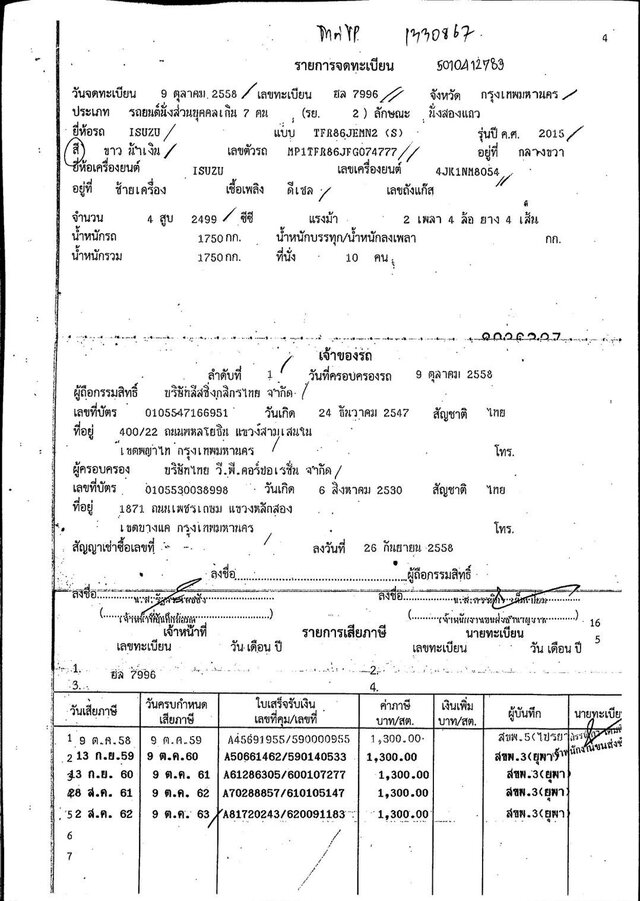 1330867
4
รายการจดทะเบียน 5010412789
วันจดทะเบียน 9 ตุลาคม 2558 เลขทะเบียน ยล 7996 จังหวัด กรุงเทพมหานคร
ประเภท รถยนต์นั่งส่วนบุคคลเกิน 7 คน (รย. 2) ลักษณะ นั่งสองแถว
ยี่ห้อรถ ISUZU แบบ TFR86JEMN2 (S) รุ่นปี ค.ศ. 2015
สี ขาว น้ำเงิน เลขตัวรถ MP1TFR86JFG074777 อยู่ที่ กลางขวา
ยี่ห้อเครื่องยนต์ ISUZU เลขเครื่องยนต์ 4JK1NM8054
อยู่ที่ ซ้ายเครื่อง เชื้อเพลิง ดีเซล เลขถังแก๊ส
จำนวน 4 สูบ 2499 ซีซี แรงม้า 2 เพลา 4 ล้อ ยาง 4 เส้น
น้ำหนักรถ 1750 กก. น้ำหนักบรรทุก/น้ำหนักลงเพลา กก.
น้ำหนักรวม 1750 กก. ที่นั่ง 10 คน
เจ้าของรถ
ลำดับที่ 1 วันที่ครอบครองรถ 9 ตุลาคม 2558
ผู้ถือกรรมสิทธิ์ บริษัทลีสซิ่งกสิกรไทย จำกัด
เลขที่บัตร 0105547166951 วันเกิด 24 ธันวาคม 2547 สัญชาติ ไทย
ที่อยู่ 400/22 ถนนพหลโยธิน แขวงสามเสนใน
เขตพญาไท กรุงเทพมหานคร โทร.
ผู้ครอบครอง บริษัทไทย วี.พี.คอร์ปอเรชั่น จำกัด
เลขที่บัตร 0105530038998 วันเกิด 6 สิงหาคม 2530 สัญชาติ ไทย
ที่อยู่ 1871 ถนนเพชรเกษม แขวงหลักสอง
เขตบางแค กรุงเทพมหานคร โทร.
สัญญาเช่าซื้อเลขที่ - ลงวันที่ 26 กันยายน 2558
ลงชื่อ ผู้ถือกรรมสิทธิ์
ลงชื่อ ลงชื่อ
16
เจ้าหน้าที่ รายการเสียภาษี นายทะเบียน 5
เลขทะเบียน วัน เดือน ปี เลขทะเบียน วัน เดือน ปี
1. ยล 7996 2.
3. 4.
วันเสียภาษี วันครบกำหนดเสียภาษี ใบเสร็จรับเงิน เลขที่คุม/เลขที่ ค่าภาษี บาท/สต. เงินเพิ่ม บาท/สต. ผู้บันทึก นายทะเบีย
1 9 ต.ค.58 9 ต.ค.59 A45691955/590000955 1,300.00
2 13 ก.ย.59 9 ต.ค.60 A50661462/590140533 1,300.00 สขพ.3(ยุพา)
13 ก.ย. 60 9 ต.ค. 61 A61286305/600107277 1,300.00 สขพ.3(ยุพา)
28 ส.ค. 61 9 ต.ค. 62 A70288857/610105147 1,300.00 สขพ.3(ยุพา)
5 2 ส.ค. 62 9 ต.ค. 63 A81720243/620091183 1,300.00 สขพ.3(ยุพา)
6
7